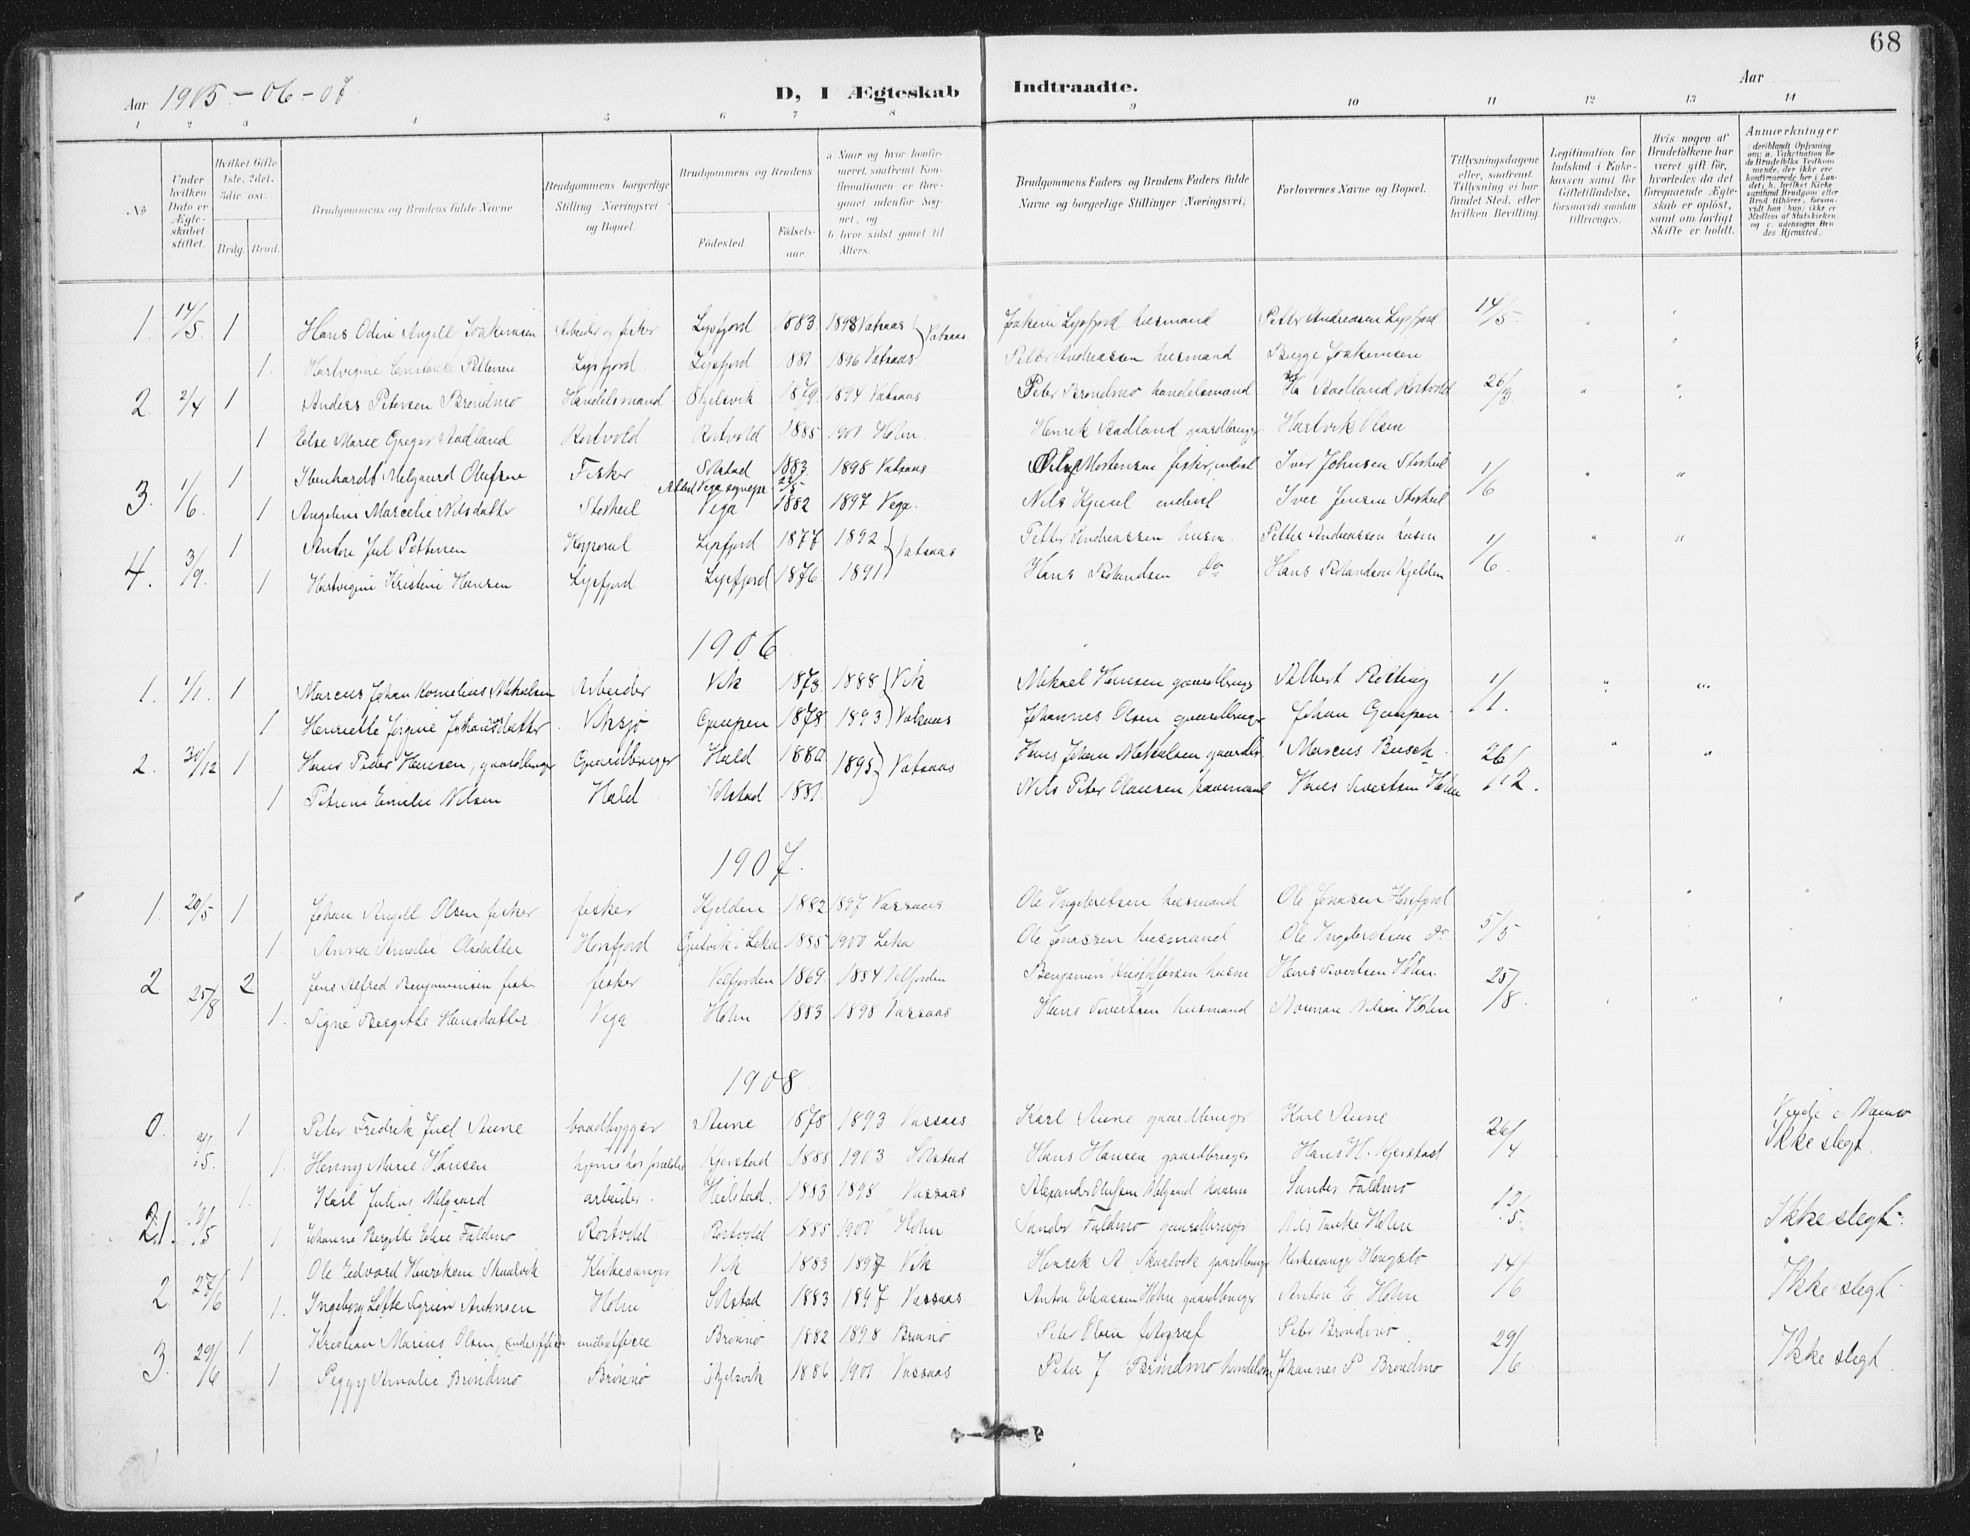 68
Aar 1905-06-07
D, I Ægteskab Indtraadte.
Aar
1 2 3 4 5 6 7 8 9 10 11 12 13 14
No
Under hvilken Dato er Ægteskabet stiftet.
Hvilket Gifte 1ste, 2det, 3die osv.
Brdg. Brud.
Brudgommens og Brudens fulde Navne
Brudgommens borgerlige Stilling (Næringsvei) og Bopæl.
Brudgommens og Brudens
Födested. Födselsaar.
a Naar og hvor konfirmeret, saafremt Konfirmationen er foregaaet udenfor Sognet, og
b hvor sidst gaaet til Alters.
Brudgommens Faders og Brudens Faders fulde Navne og borgerlige Stillinger (Næringsvei)
Forlovernes Navne og Bopæl.
Tillysningsdagene eller, saafremt Tillysning ei har fundet Sted, efter hvilken Bevilling.
Legitimation for Indskud i Enkekassen samt for Giftetilladelse, forsaavidt saadan tiltrænges.
Hvis nogen af Brudefolkene har været gift för, hvorledes da det foregaaende Ægteskab er oplöst, samt om lovligt Skifte er holdt.
Anmærkninger
1. 14/5. 1 Hans Odin Angell Joakimsen Arbeider og fisker Lysfjord 1883 1898 Vatsaas Joakim Lysfjord husmand Petter Andreassen Lysfjord 14/5.
1. Hartvigine Constance Pettersen Lysfjord. Lysfjord 1881 1896 Vatsaas Petter Andreassen husmand Bugge Joakimsen
2 2/4 1 Anders Petersen Bröndmo Handelsmand Skjelsvik 1879. 1894 Vatsaas Peter Bröndmo handelsmand H. Aadland Rortvold 26/3.
1 Else Marie Greger Aadland Rortvold Rortvold 1885 1901 Holm. Henrik Aadland gaardbruger Hartvik Olsen
3. 1/6. 1 Ibenhardt Melgaard Olufsen Fisker Solstad 1883 1898 Vatsaas Oluf Mortensen fisker, Iver Johnsen Storheil 1/6
1 Angeline Marcelie Nilsdatter Storheil Vega 1882 1897 Vega. Nils Iver Jensen Storheil
4. 3/9. 1 Anton Jul Pettersen Korporal Lysfjord 1877 1892 Vatsaas Petter Andreassen husm. Petter Andreassen husm. 1/6.
1 Hartvigine Kristine Hansen Lysfjord Lysfjord 1876 1891 Hans Rolandsen do Hans Rolandsen Kjelden
1906
1. 1/1. 1 Marcus Johan Kornelius Mikalsen Arbeider Vik 1873 1888 Vik Mikael Hansen gaardbruger Albert Rötting 1/1.
1 Henriette Jörgine Johansdatter Viksjö Gaupen 1878 1893 Vatsaas Johannes Olsen gaardbruger Johan Gaupen
2. 30/12 1 Hans Peder Hansen, gaardbruger Gaardbruger Hald 1880 1895 Vatsaas Hans Johan Mikalsen gaardbr. Marcus Busch. 26/12.
1 Petrine Emelie Nilsen Hald Solstad 1881. Nils Peter Olausen husmand Hans Sivertsen Holm
1907.
1. 20/5 1 Johan Angell Olsen fisker fisker Kjelden 1882 1897 Vassaas Ole Ingebretsen husmand Ole Jonasen Horsfjord 5/5
1. Anna Amalie Olsdatter Horsfjord Gutvik i Leka 1885 1900 Leka Ole Jonassen husmand Ole Ingebretsen do
2 25/8 2 Jens Alfred Benjaminsen fisker fisker Velfjorden 1869. 1884 Velfjorden Benjamin Kristoffersen husm Hans Sivertsen Holm. 25/8
1. Signe Bergitte Hansdatter Vega Holm 1883 1898 Vassaas Hans Sivertsen husmand Normann Nilsen Holm
1908
0. 1. Peter Fredrik Juel Aune baadbygger Aune 1878 1893 Vassaas Karl Aune gaardbruger Karl Aune. 26/4
1. Henny Marie Hansen hjemme hos forældre Kjerstad 1888 1903 Solstad Hans Hansen gaardbruger Hans H. Kjerstad Ikke slegt
1. Karl Julius Melgaard arbeider. Heilstad 1883 1898 Vassaas Alexander Olufsen Melgaard husm Sander Faldmo
1 Johanne Bergitte Eline Faldmo Rortvold Rortvold 1885 1900 Holm Sander Faldmo gaardbruger Nils Tanke Holm Ikke slegt
2. 27/6 1 Ole Edvard Henriksen Skaalvik Kirkesanger Vik 1883 1897 Vik Henrik A. Skaalvik gaardbruger Kirkesanger Hongslo 14/6
1. Ingeborg Lofte Sigrun Antonsen Holm Solstad 1883 1897 Vassaas Anton Eliassen Holm gaardbruger Anton E. Holm Ikke slegt
3. 29/6 1 Kristian Marius Olsen, underofficer underofficer Brönnö 1882 1898 Brönnö Peter Olsen fotograf Peter Bröndmo 29/6
1 Peggy Amalie Bröndmo Brönnö Skjelsvik 1886 1901 Vassaas Peter J Bröndmo handelsm Johannes P Bröndmo Ikke slegt